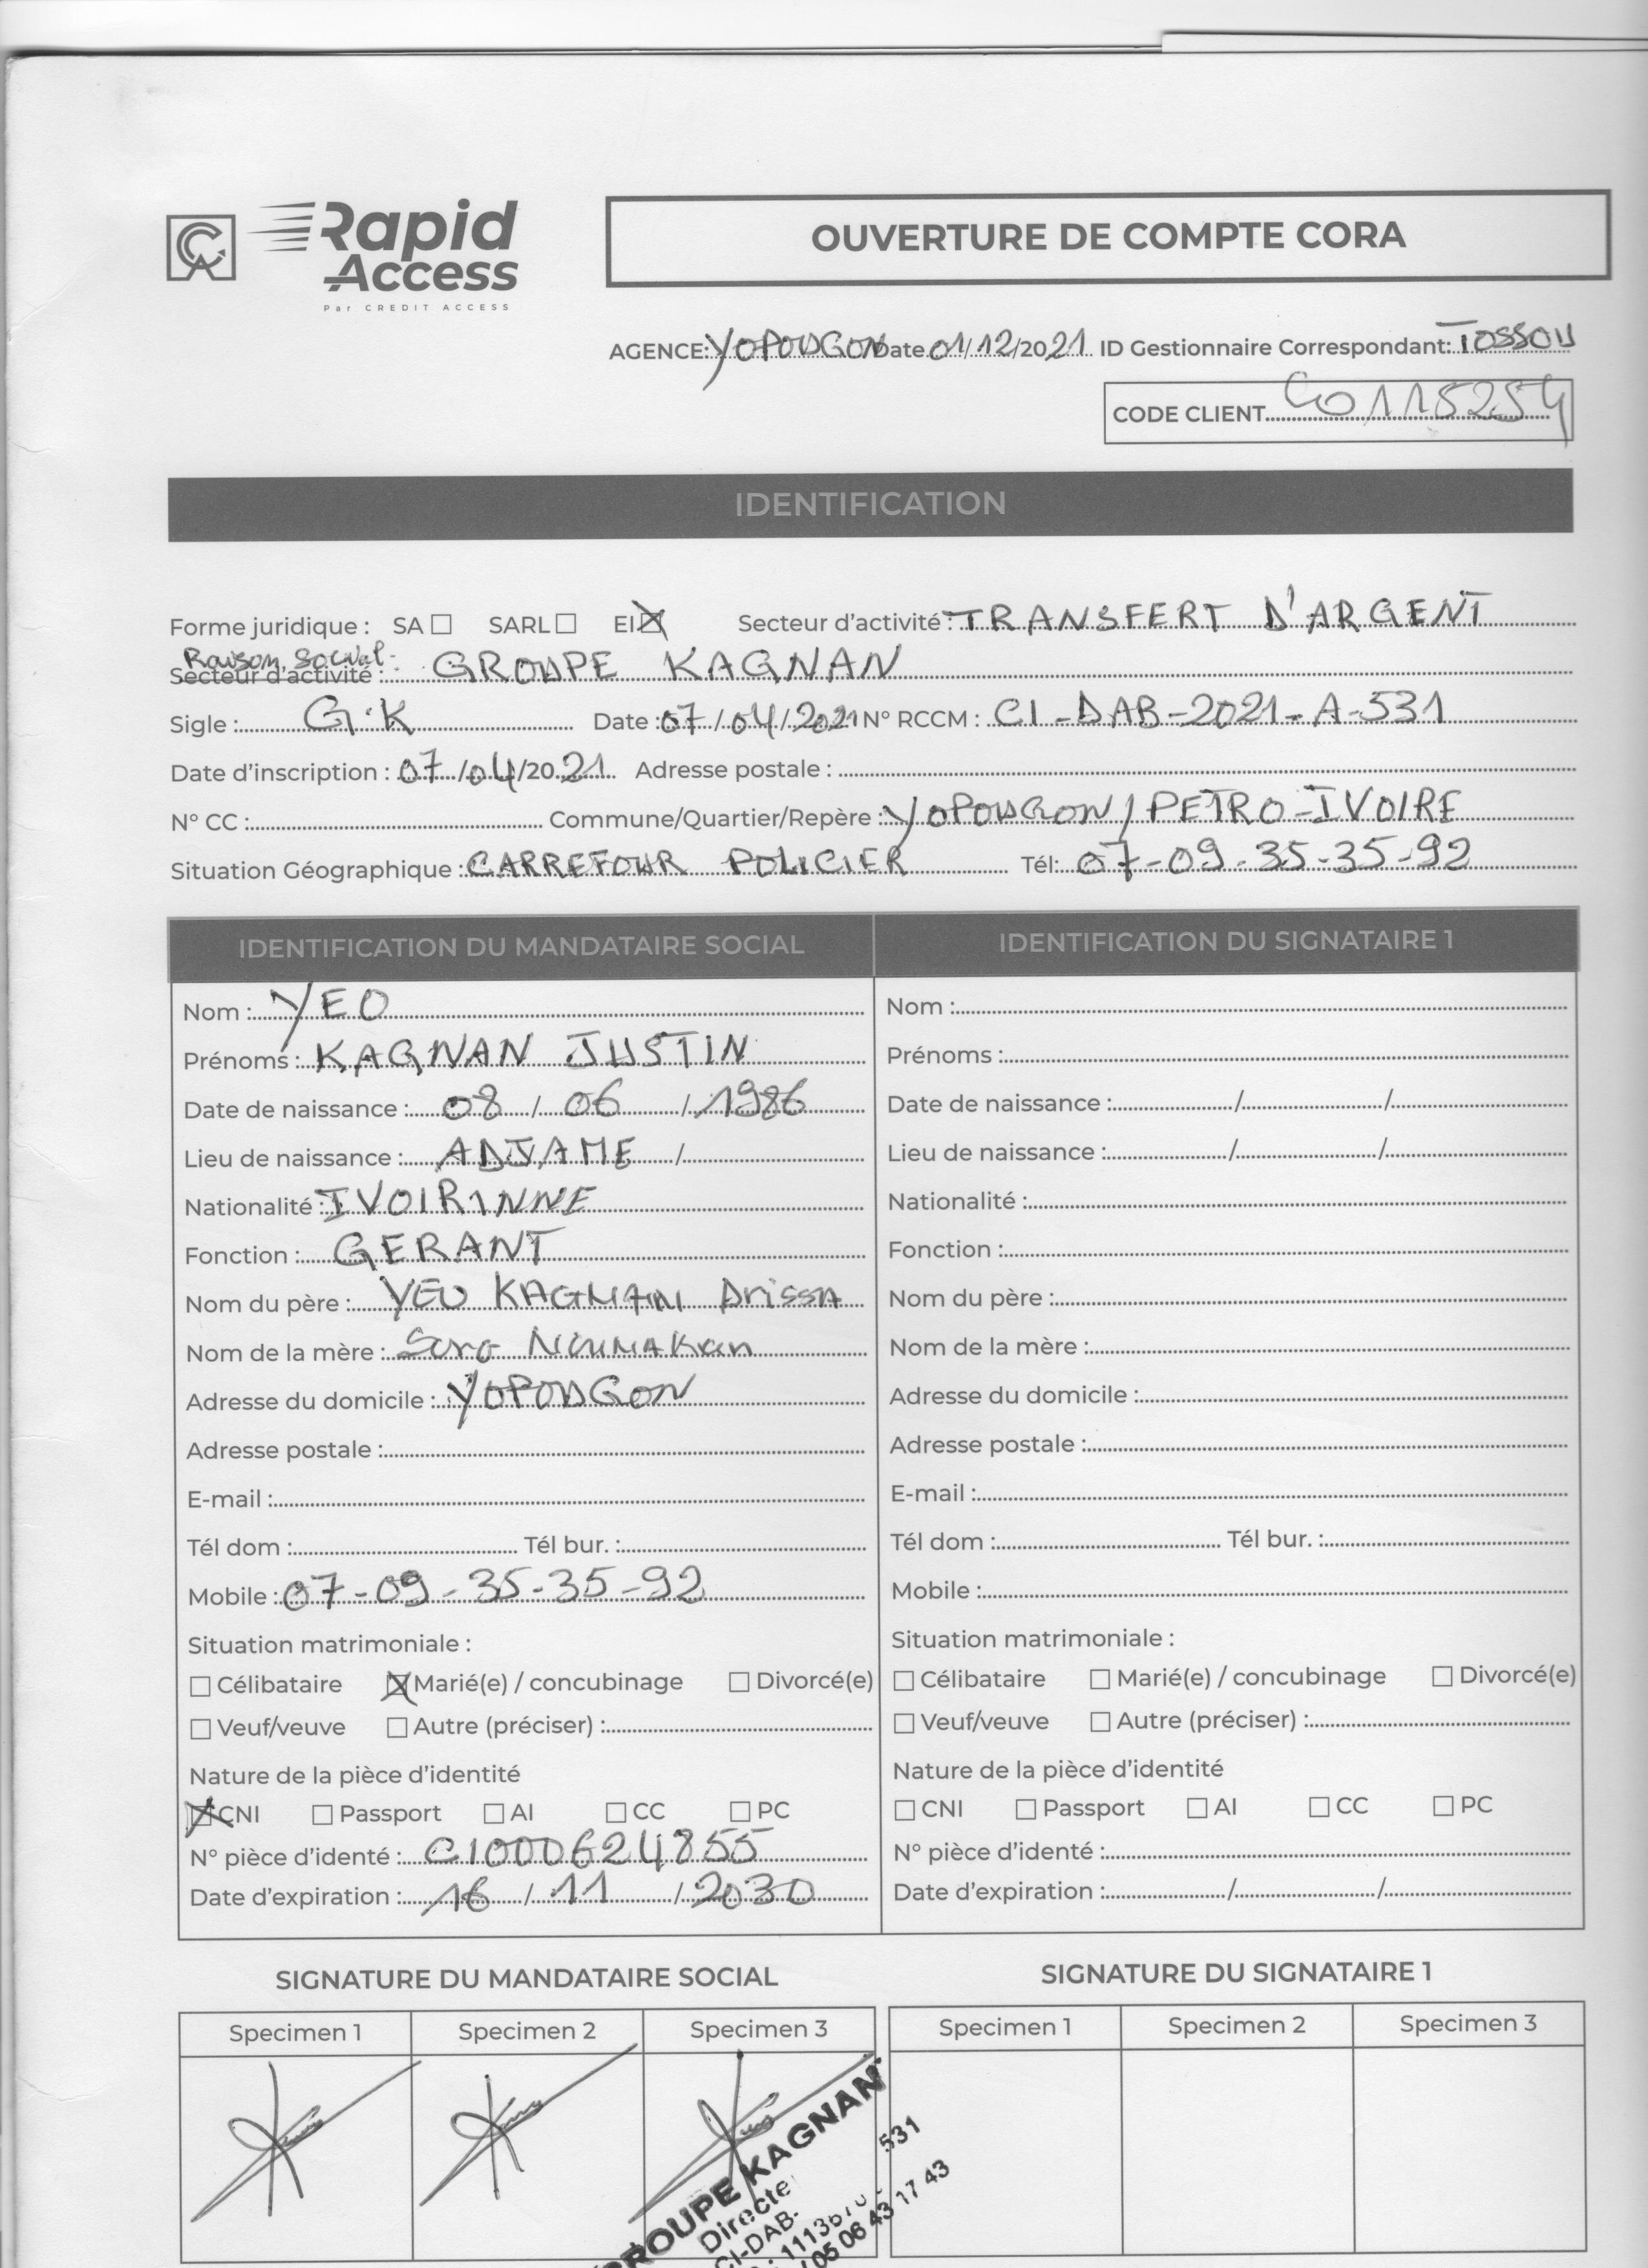 CA Rapid Access
Par CREDIT ACCESS
OUVERTURE DE COMPTE CORA
AGENCE: YOPOUGON Date 01/12/2021 ID Gestionnaire Correspondant: TOSSOU
CODE CLIENT 40115254
IDENTIFICATION
Forme juridique : SA ☐ SARL ☐ EI ☒ Secteur d'activité : TRANSFERT D'ARGENT
Raison social
Secteur d'activité : GROUPE KAGNAN
Sigle : G.K Date : 07/04/2021 N° RCCM : CI-DAB-2021-A-531
Date d'inscription : 07/04/2021 Adresse postale :
N° CC : Commune/Quartier/Repère : YOPOUGON / PETRO-IVOIRE
Situation Géographique : CARREFOUR POLICIER Tél: 07-09-35-35-92
IDENTIFICATION DU MANDATAIRE SOCIAL IDENTIFICATION DU SIGNATAIRE 1
Nom : YEO
Prénoms : KAGNAN JUSTIN
Date de naissance : 08 / 06 / 1986
Lieu de naissance : ADJAME /
Nationalité : IVOIRINNE
Fonction : GERANT
Nom du père : YEO KAGNAN Drissa
Nom de la mère : Soro
Adresse du domicile : YOPOUGON
Adresse postale :
E-mail :
Tél dom : Tél bur. :
Mobile : 07-09-35-35-92
Situation matrimoniale :
☐ Célibataire ☒ Marié(e) / concubinage ☐ Divorcé(e)
☐ Veuf/veuve ☐ Autre (préciser) :
Nature de la pièce d'identité
☒ CNI ☐ Passport ☐ AI ☐ CC ☐ PC
N° pièce d'identé : CI000624855
Date d'expiration : 16 / 11 / 2030
Nom :
Prénoms :
Date de naissance : / /
Lieu de naissance : / /
Nationalité :
Fonction :
Nom du père :
Nom de la mère :
Adresse du domicile :
Adresse postale :
E-mail :
Tél dom : Tél bur. :
Mobile :
Situation matrimoniale :
☐ Célibataire ☐ Marié(e) / concubinage ☐ Divorcé(e)
☐ Veuf/veuve ☐ Autre (préciser) :
Nature de la pièce d'identité
☐ CNI ☐ Passport ☐ AI ☐ CC ☐ PC
N° pièce d'identé :
Date d'expiration : / /
SIGNATURE DU MANDATAIRE SOCIAL SIGNATURE DU SIGNATAIRE 1
Specimen 1 Specimen 2 Specimen 3 Specimen 1 Specimen 2 Specimen 3
GROUPE KAGNAN
CI-DAB- 531
05 06 43 17 43